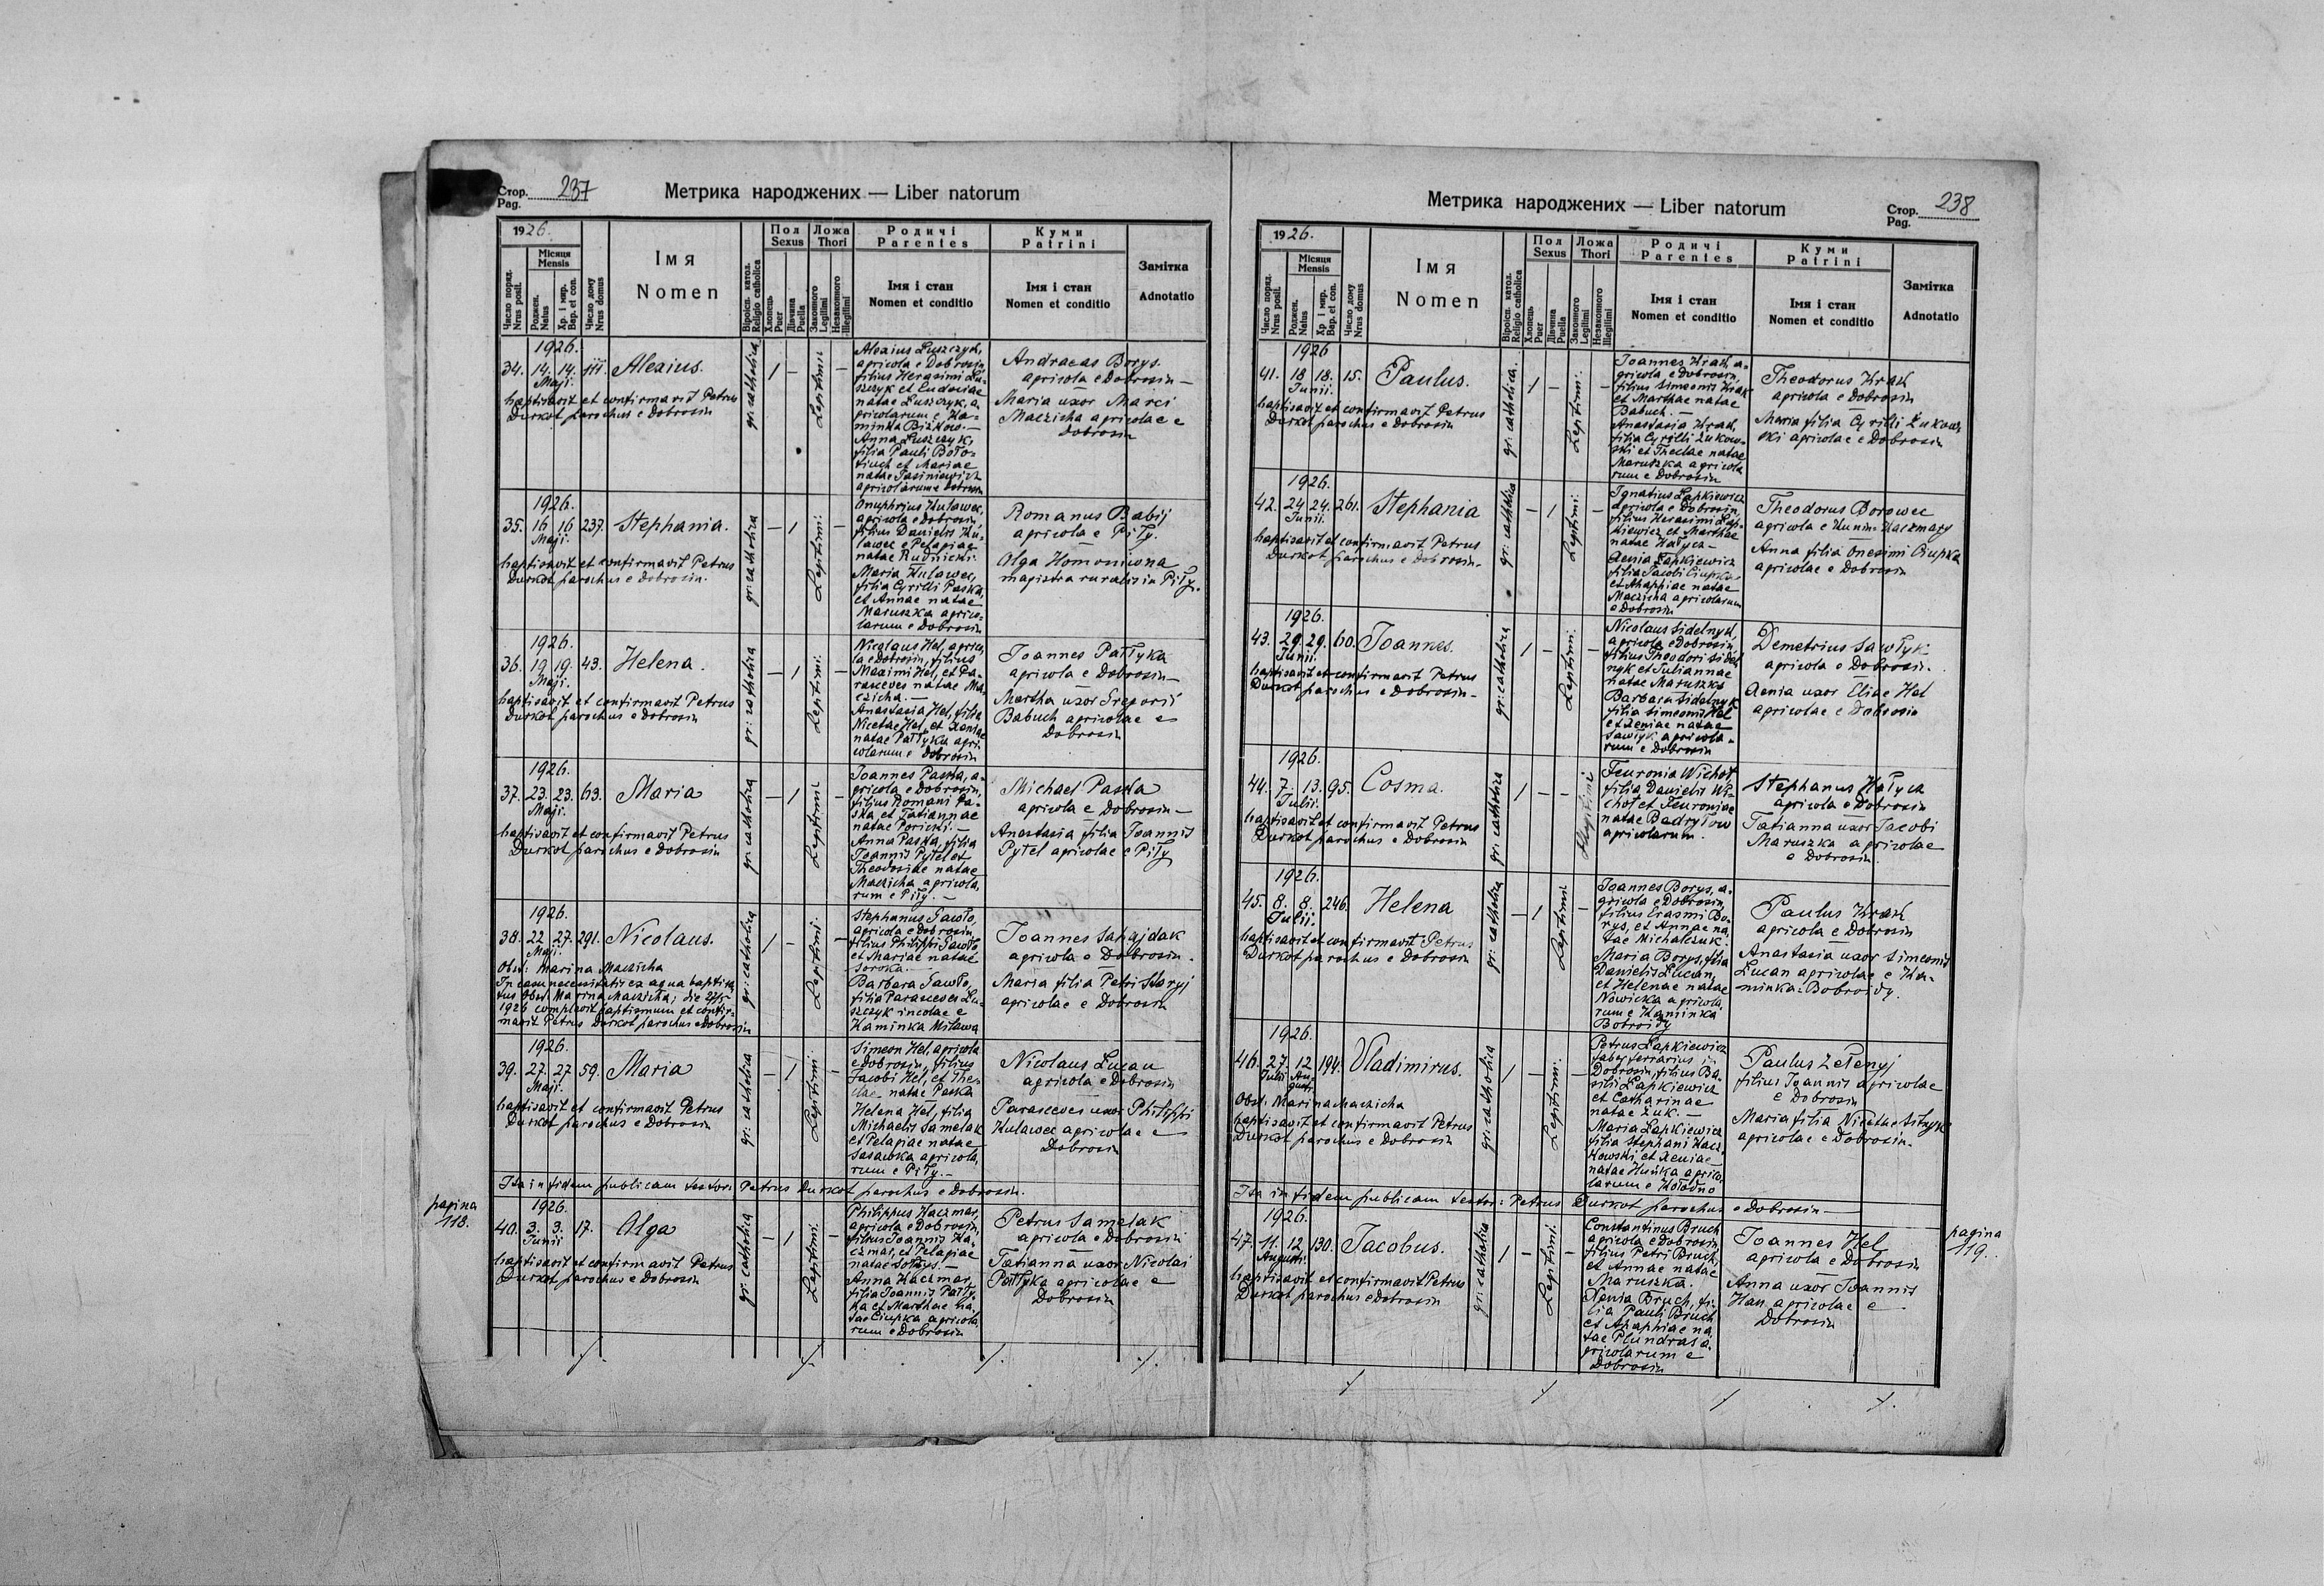 Стор. 237
Pag.
Метрика народжених — Liber natorum
1926.
Число поряд.
Nrus posit.
Місяця
Mensis
Роджен.
Natus
Хр. і мир.
Bap. et con.
Число дому
Nrus domus
Імя
Nomen
Віроісп. катол.
Religio catholica
Пол
Sexus
Хлопець
Puer
Дівчина
Puella
Ложа
Thori
Законного
Legitimi
Незаконного
Illegitimi
Родичі
Parentes
Імя і стан
Nomen et conditio
Куми
Patrini
Імя і стан
Nomen et conditio
Замітка
Adnotatio
1926.
34. 14. 14. 111. Alexius.
Maji.
baptisavit et confirmavit Petrus
Durkot parochus e Dobrosin
gr: catholica
1 –
Legitimi –
Alexius Łuszczyk,
agricola e Dobrosin
filius Herasimi Łu-
szczyk et Eudoxiae
natae Łuszczyk, a-
gricolarum e Ka-
minka
Anna Łuszczyk,
filia Pauli
et Mariae
natae
agricolarum e Dobrosin
Andraeas Borys
agricola e Dobrosin –
Maria uxor Marci
Maczicha agricolae e
Dobrosin
1926.
35. 16 16 237. Stephania.
Maji.
baptisavit et confirmavit Petrus
Durkot parochus e Dobrosin.
gr: catholica
– 1
Legitimi. –
Onuphrius Kulawec,
agricola e Dobrosin
filius Danielis Ku-
lawec e Pelagiae
natae Rudnicki.
Maria Kulawec,
filia Cyrilli Paska,
et Annae natae
Maruszka agrico-
larum e Dobrosin
Romanus Babij
agricola e Piły.
Olga Homoniwna
magistra ruralis in Piły.
1926.
36. 19 19. 43. Helena.
Maji.
baptisavit et confirmavit Petrus
Durkot parochus e Dobrosin
gr: catholica
– 1
Legitimi. –
Nicolaus Hel, agrico-
la e Dobrosin, filius
Maximi Hel, et Pa-
rasceves natae Ma-
czicha. –
Anastasia Hel, filia
Nicetae Hel, et Xeniae
natae Pałłyka agri-
colarum e Dobrosin
Joannes Pałłyka
agricola e Dobrosin –
Martha uxor Gregorii
Babuch agricolae e
Dobrosin
1926.
37. 23. 23. 63. Maria
Maji.
baptisavit et confirmavit Petrus
Durkot parochus e Dobrosin
gr: catholica
– 1
Legitimi –
Joannes Paska, a-
gricola e Dobrosin,
filius Romani Pa-
ska, et Tatiannae
natae Poricki. –
Anna Paska, filia
Joannis Pytel et
Theodosiae natae
Maczicha agricola-
rum e Piły. –
Michael Paska
agricola e Dobrosin –
Anastasia filia Joannis
Pytel agricolae e Piły
1926.
38. 22 27. 291. Nicolaus.
Maji.
Obst: Marina Maczicha
In casu necessitatis ex aqua baptisa-
tus Obst. Marina Maczicha; die 27/5
1926 complevit baptismum et confir-
mavit Petrus Durkot parochus e Dobrosin
gr: catholica
1 –
Legitimi. –
Stephanus Gawło,
agricola e Dobrosin
filius Philippi Gawło
et Mariae natae
Soroka.
Barbara Gawło,
filia Parasceves Łu-
szczyk incolae e
Kaminka Milawa
Joannes Sahajdak
agricola e Dobrosin.
Maria filia Petri Skoryj
agricolae e Dobrosin
1926.
39. 27. 27 59. Maria
Maji.
baptisavit et confirmavit Petrus
Durkot parochus e Dobrosin
gr: catholica
– 1
Legitimi –
Simeon Hel, agricola
e Dobrosin, filius
Jacobi Hel, et The-
clae natae Paska
Helena Hel, filia
Michaelis Samelak
et Pelagiae natae
Sasawka agricola-
rum e Piły. –
Nicolaus Łucan
agricola e Dobrosin
Parasceves uxor Philippi
Kulawec agricolae e
Dobrosin
Ita in fidem publicam testor: Petrus Durkot parochus e Dobrosin.
pagina
118.
1926.
40. 3. 3. 17. Olga
Junii
baptisavit et confirmavit Petrus
Durkot parochus e Dobrosin
gr: catholica
– 1
Legitimi. –
Philippus Kaczmar,
agricola e Dobrosin,
filius Joannis Ka-
czmar, et Pelagiae
natae Sołtys. –
Anna Kaczmar,
filia Joannis Pałły-
ka et Marthae na-
tae Ciupka agricola-
rum e Dobrosin
Petrus Samelak
agricola e Dobrosin
Tatianna uxor Nicolai
Pałłyka agricolae e
Dobrosin
Стор. 238
Pag.
Метрика народжених — Liber natorum
1926.
Число поряд.
Nrus posit.
Місяця
Mensis
Роджен.
Natus
Хр. і мир.
Bap. et con.
Число дому
Nrus domus
Імя
Nomen
Віроісп. катол.
Religio catholica
Пол
Sexus
Хлопець
Puer
Дівчина
Puella
Ложа
Thori
Законного
Legitimi
Незаконного
Illegitimi
Родичі
Parentes
Імя і стан
Nomen et conditio
Куми
Patrini
Імя і стан
Nomen et conditio
Замітка
Adnotatio
1926
41. 18 18. 15. Paulus.
Junii.
baptisavit et confirmavit Petrus
Durkot parochus e Dobrosin
gr. catholica.
1 –
Legitimi. –
Joannes Krak, a-
gricola e Dobrosin,
filius Simeonis Krak
et Marthae natae
Babuch. –
Anastasia Krak,
filia Cyrilli Żukow-
ski et Theclae natae
Maruszka agricola-
rum e Dobrosin
Theodorus Krak
agricola e Dobrosin
Maria filia Cyrilli Żukow-
ski agricolae e Dobrosin
1926.
42. 24 24. 261. Stephania
Junii.
baptisavit et confirmavit Petrus
Durkot parochus e Dobrosin.
gr: catholica
– 1
Legitimi. –
Ignatius Łapkiewicz
agricola e Dobrosin,
filius Herasimi Łap-
kiewicz et Marthae
natae Hałyca –
Xenia Łapkiewicz
filia Jacobi Ciupka
et Ahaphiae natae
Maczicha agricolarum
e Dobrosin
Theodorus Borowec
agricola e Kunin-Kaczmary
Anna filia Onesimi Ciupka
agricolae e Dobrosin
1926.
43. 29. 29. 60. Joannes.
Junii.
baptisavit et confirmavit Petrus
Durkot parochus e Dobrosin –
gr: catholica
1 –
Legitimi. –
Nicolaus Sidelnyk,
agricola e Dobrosin,
filius Theodori Sidel-
nyk et Juliannae
natae Maruszka
Barbara Sidelnyk
filia Simeonis Hel
et Xeniae natae
Sawłyk agricola-
rum e Dobrosin
Demetrius Sawłyk
agricola e Dobrosin.
Xenia uxor Eliae Hel
agricolae e Dobrosin
1926.
44. 7. 13. 95. Cosma.
Julii.
baptisavit et confirmavit Petrus
Durkot parochus e Dobrosin
gr: catholica
1 – –
Illegitimi
Feuronia Wichot,
filia Danielis Wi-
chot et Feuroniae
natae Badryłow
agricolarum.
Stephanus Hałyca
agricola e Dobrosin
Tatianna uxor Jacobi
Maruszka agricolae
e Dobrosin.
1926.
45. 8. 8. 246. Helena
Julii.
baptisavit et confirmavit Petrus
Durkot parochus e Dobrosin
gr: catholica
– 1
Legitimi –
Joannes Borys, a-
gricola e Dobrosin,
filius Erasmi Bo-
rys, et Annae na-
tae Michalczuk.
Maria Borys, filia
Danielis Łucan,
et Helenae natae
Nowicka agricola-
rum e Kaminka
Bobroidy
Paulus Krak
agricola e Dobrosin
Anastasia uxor Simeonis
Łucan agricolae e Ka-
minka-Bobroidy.
1926.
46. 27. 12 194. Vladimirus.
Julii Au-
gusti
Obst: Marina Maczicha
baptisavit et confirmavit Petrus
Durkot parochus e Dobrosin
gr: catholica
1 –
Legitimi. –
Petrus Łapkiewicz
faber ferrarius i
Dobrosin, filius Ba-
silii Łapkiewicz
et Catharinae
natae Żuk. –
Maria Łapkiewicz
filia Stephani Kacz-
kowski et Xeniae
natae Huńka agrico-
larum e Kołodno
Paulus Zełenyj
filius Joannis agricolae
e Dobrosin
Maria filia Nicetae Sitnyk
agricolae e Dobrosin.
Ita in fidem publicam testor: Petrus Durkot parochus e Dobrosin –
1926.
47. 11. 12 130. Jacobus.
Augusti.
baptisavit et confirmavit Petrus
Durkot parochus e Dobrosin
gr: catholica
1 –
Legitimi. –
Constantinus Bruch
agricola e Dobrosin
filius Petri Bruch,
et Annae natae
Maruszka.
Xenia Bruch, fi-
lia Pauli Bruch
et Ahaphiae na-
tae Plundras a-
gricolarum e
Dobrosin
Joannes Hel
agricola e Dobrosin
Anna uxor Joannis
Han agricolae e
Dobrosin
pagina
119.